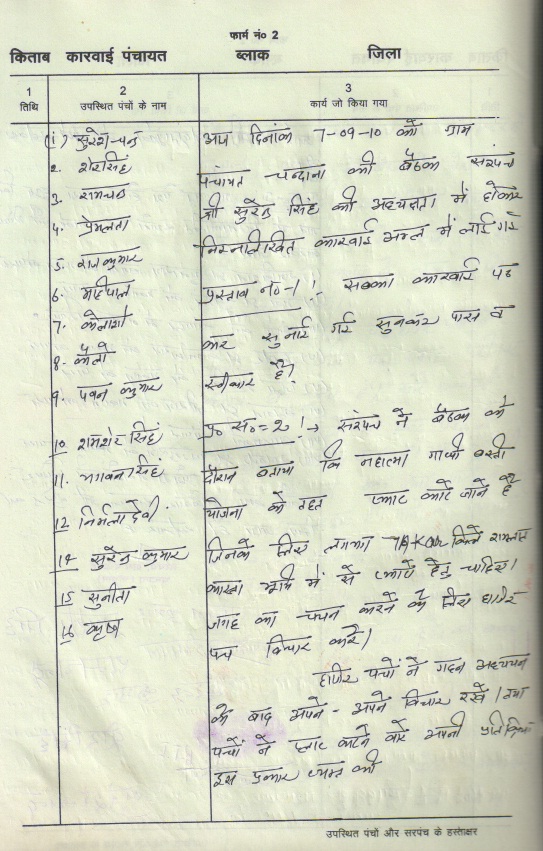 फार्म नं० 2
किताब कारवाई पंचायत ब्लाक जिला
1 2 3
तिथि उपस्थित पंचों के नाम कार्य जो किया गया
(1) सुरेश चन्द
2. शेरसिंह
3. रामचन्द्र
4. प्रेमलता
5. राजकुमार
6. महीपाल
7. कैलाशो
8. कैलो
9. पवन कुमार
10. शमशेर सिंह
11. भगवान सिंह
12 निर्मला देवी
14 सुरेन्द्र कुमार
15 सुनीता
16 कृष्ण
आज दिनांक 7-09-10 को ग्राम
पंचायत चन्दाना की बैठक सरपंच
श्री सुरेन्द्र सिंह की अध्यक्षता में होकर
निम्नलिखित कारवाई अमल में लाई गई
प्रस्ताव न०-1!- कारवाई पढ
कर सुनाई गई सुनकर पास व
स्वीकार है।
प्र० स०=2!→ सरपंच ने बैठक के
दौरान बताया कि महात्मा गांधी बस्ती
योजना के तहत प्लाट काटे जाने है
जिनके लिए लगभग
भूमि में से हेतु चाहिए।
जगह का चयन करने के लिए हाजिर
पंच विचार करे।
हाजिर पंचों ने गहन अध्ययन
के बाद अपने-अपने विचार रखे। तथा
पंचों ने प्लाट काटने बारे अपनी प्रतिक्रिया
इस प्रकार व्यक्त की
उपस्थित पंचों और सरपंच के हस्ताक्षर